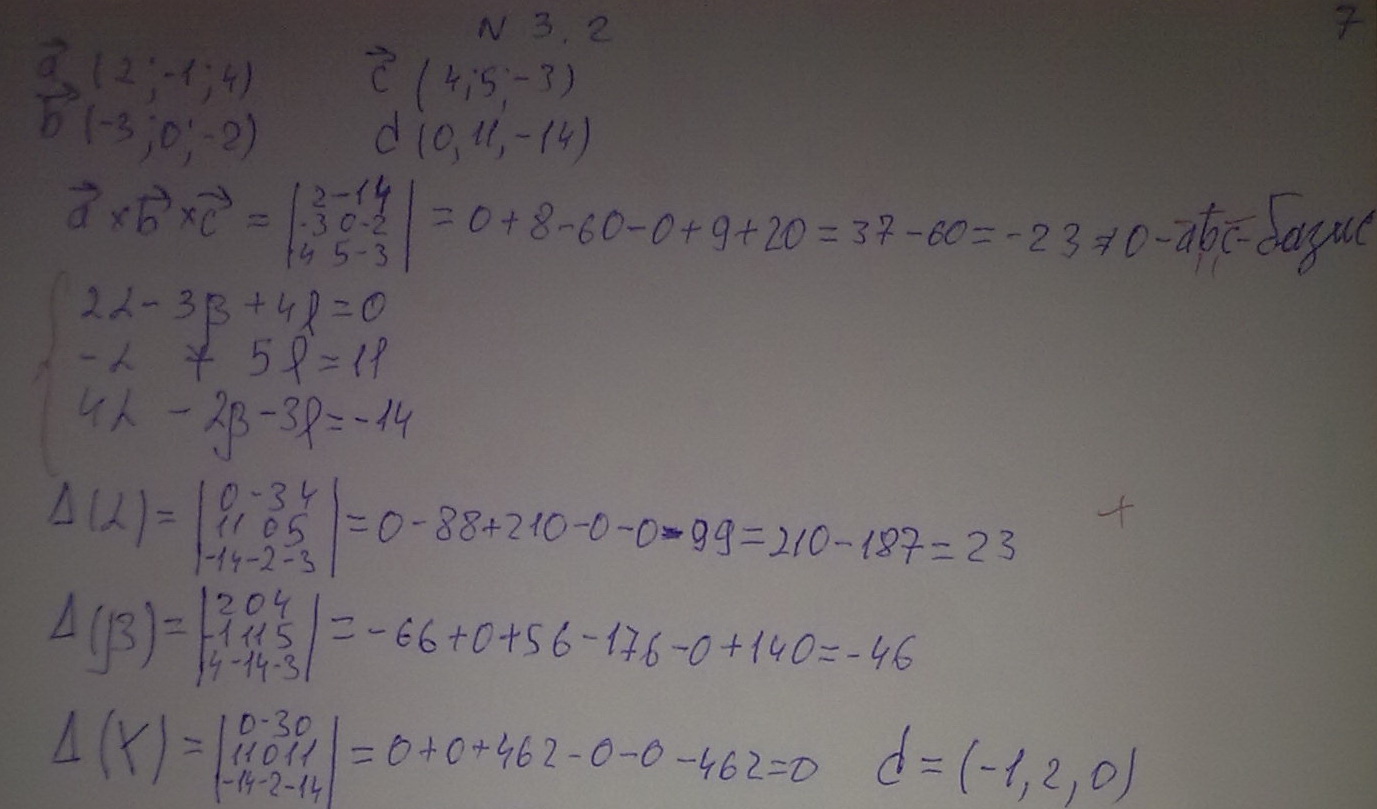 N 3.2 7
a⃗ (2;-1;4) c⃗ (4;5;-3)
b⃗ (-3;0;-2) d (0,11,-14)
a⃗ × b⃗ × c⃗ = |2 -1 4; -3 0 -2; 4 5 -3| = 0+8-60-0+9+20=37-60=-23≠0-a̅b̅c̅-базис
2α-3β+4γ=0
-α + 5γ=11
4α - 2β-3γ=-14
Δ(α)= |0 -3 4; 11 0 5; -14 -2 -3| =0-88+210-0-0-99=210-187=23
+
Δ(β)= |2 0 4; -1 11 5; 4 -14 -3| =-66+0+56-176-0+140=-46
Δ(γ)= |0 -3 0; 11 0 11; -14 -2 -14| =0+0+462-0-0-462=0 d=(-1,2,0)